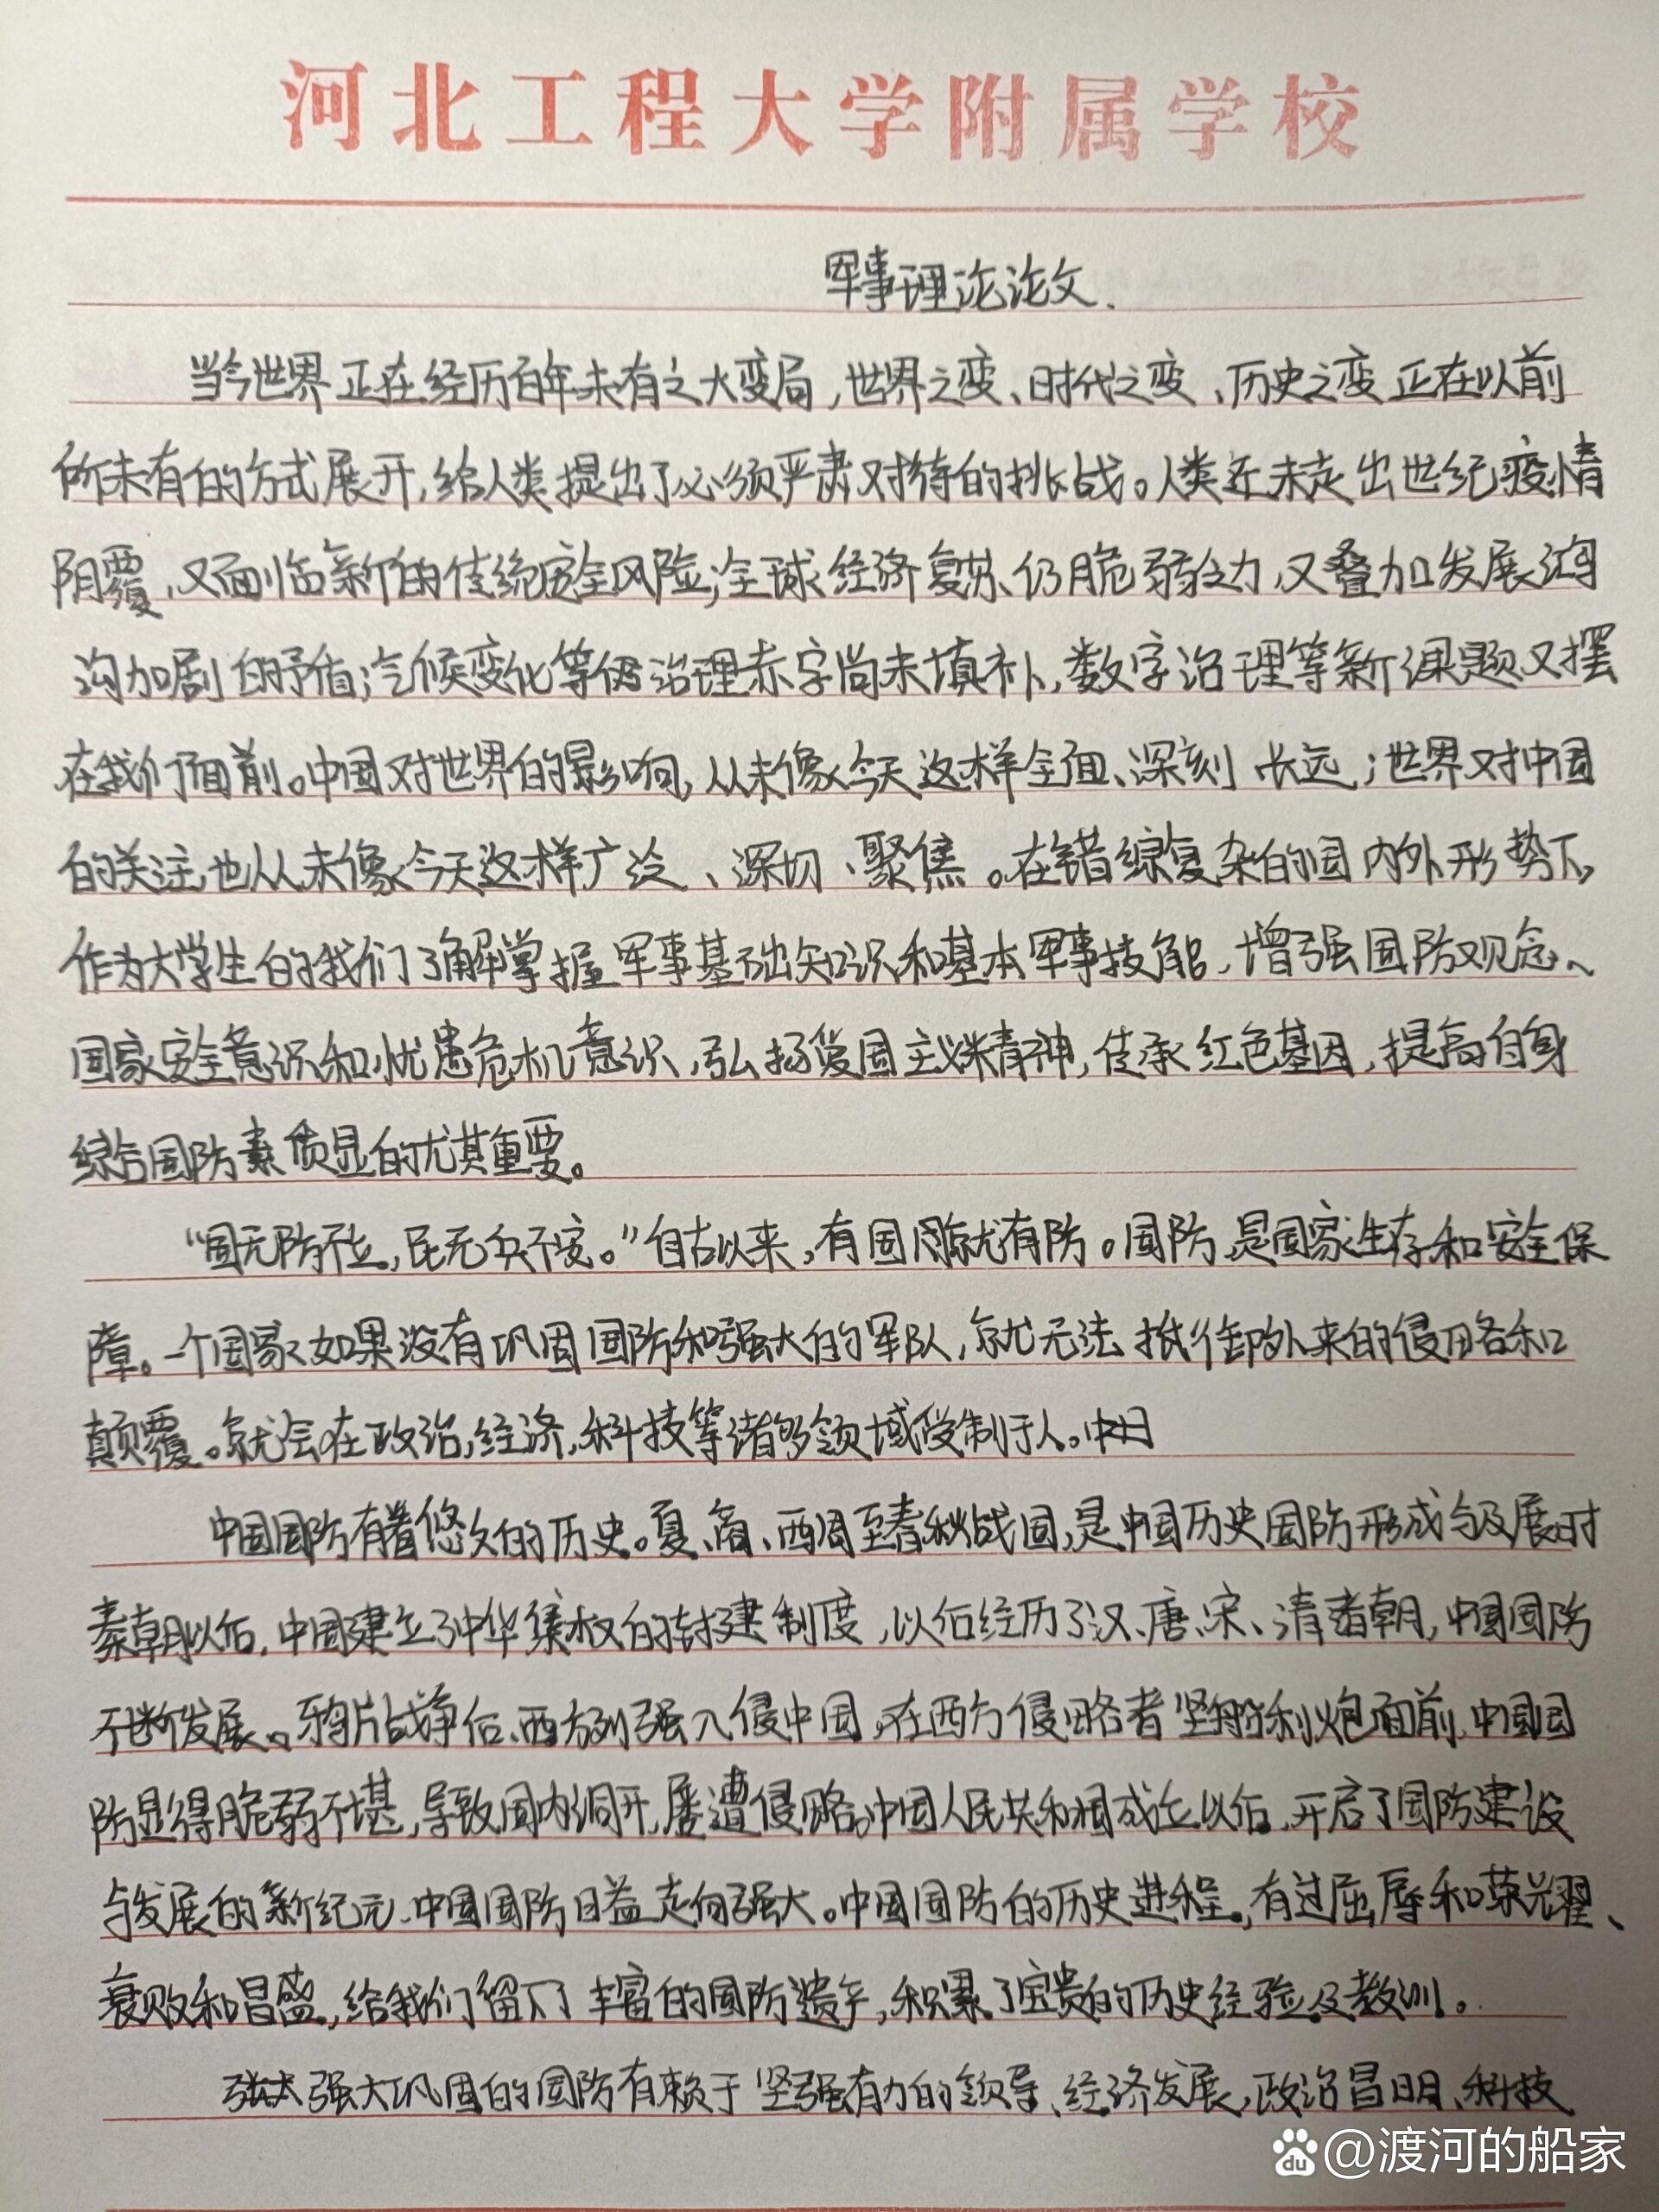 河北工程大学附属学校
军事理论论文.
当今世界正在经历百年未有之大变局,世界之变、时代之变、历史之变正在以前
所未有的方式展开,给人类提出了必须严肃对待的挑战。人类还未走出世纪疫情
阴覆,又面临新的传统安全风险;全球经济复苏仍脆弱乏力,又叠加发展鸿
沟加剧的矛盾;气候变化等治理赤字尚未填补,数字治理等新课题又摆
在我们面前。中国对世界的影响,从未像今天这样全面、深刻、长远;世界对中国
的关注,也从未像今天这样广泛、深切、聚焦。在错综复杂的国内外形势下,
作为大学生的我们了解掌握军事基础知识和基本军事技能,增强国防观念、
国家安全意识和忧患危机意识,弘扬爱国主义精神,传承红色基因,提高自身
综合国防素质显的尤其重要。
“国无防不立,民无兵不安。”自古以来,有国就有防。国防,是国家生存和安全保
障。一个国家如果没有巩固国防和强大的军队,就无法抵御外来的侵略和
颠覆。就会在政治,经济,科技等诸多领域受制于人。
中国国防有着悠久的历史。夏、商、西周至春秋战国,是中国历史国防形成与发展时
秦朝以后,中国建立了中华集权的封建制度,以后经历了汉、唐、宋、清诸朝,中国国防
不断发展。鸦片战争后,西方列强入侵中国,在西方侵略者坚船利炮面前,中国国
防显得脆弱不堪,导致国内洞开,屡遭侵略。中国人民共和国成立以后,开启了国防建设
与发展的新纪元,中国国防日益走向强大。中国国防的历史进程,有过屈辱和荣耀、
衰败和昌盛,给我们留下了丰富的国防遗产,积累了宝贵的历史经验及教训。
强大巩固的国防有赖于坚强有力的领导、经济发展,政治昌明、科技
Baidu @渡河的船家